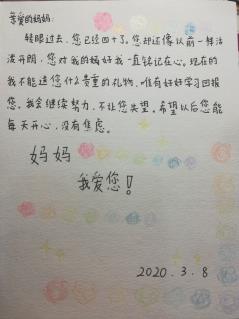 亲爱的妈妈:
转眼过去，您已经四十了。您却还像以前一样活
泼开朗，您对我的好我一直铭记在心。现在的
我不能送您什么贵重的礼物，唯有好好学习回报
您。我会继续努力，不让您失望。希望以后您能
每天开心，没有焦虑。
妈妈
我爱您!
2020.3.8